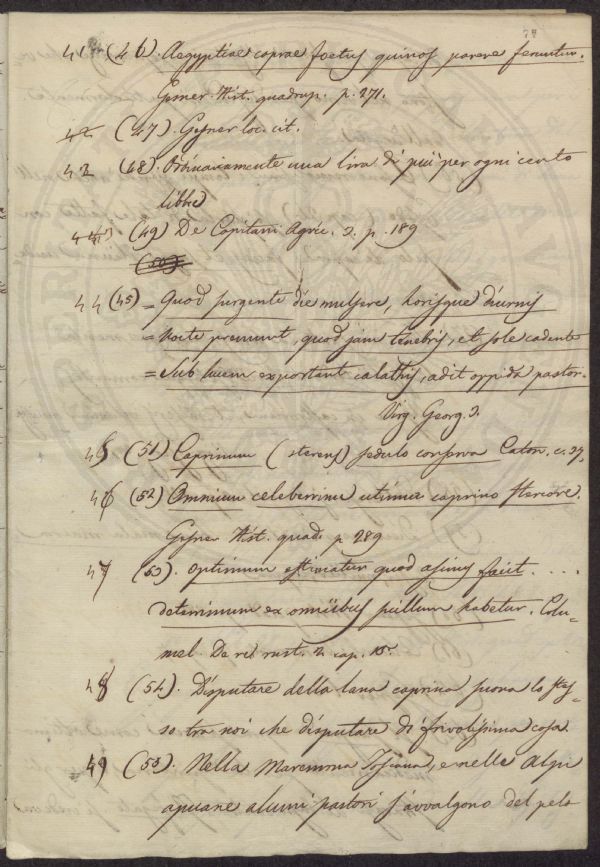 74
41 (46). Aegyptiae caprae foetus quinos parere feruntur.
Gesner. Hist. quadrup. p. 271.
42 (47). Gesner loc. cit.
42 (48). Ordinariamente una lira di più per ogni cento
libbre
43 (49) De Capitani Agric. 2. p. 189
(50)
44 (45) = Quod surgente die mulsere, horisque diurnis
= Nocte premunt, quod jam tenebris, et sole cadente
= Sub lucem exportant calathis, adit oppida pastor.
Virg. Georg. 3.
45 (51) Caprinum (stercus) sedulo conserva Caton. c. 37,
46 (52) Omnium celeberrime utimur caprino stercore.
Gesner Hist. quad. p. 289
47 (53). optimum estimatur quod asinus facit . . . .
deterrimum ex omnibus suillum habetur. Colu=
mel. De re rust. 2. cap. 15.
48 (54). Disputare della lana caprina suona lo stes=
so tra noi che disputare di frivolissima cosa.
49 (55). Nella Maremma Toscana, e nelle Alpi
apuane alcuni pastori s'avvalgono del pelo